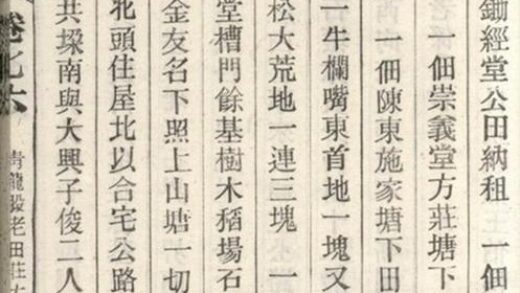 鋤經堂公田納租　一佃
一佃崇義堂方莊塘下
一佃陳東施家塘下田
一牛欄嘴東首地一塊又
松大荒地一連三塊　一
堂槽門餘基樹木稻場石
金友名下照上山塘一切
北頭住屋北以合宅公路
共垜南與大興子俊二人
青龍股老田莊